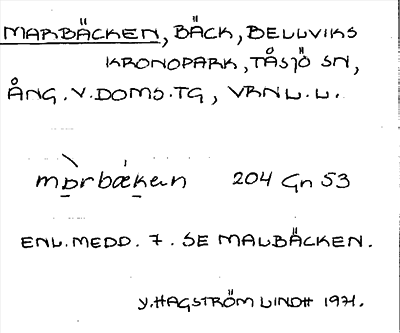 MARBÄCKEN, BÄCK, BELLVIKS
KRONOPARK, TÅSJÖ SN,
ÅNG. V. DOMS. TG, VRNL. L.
mɒrbækɐn 204 Gn 53
ENL. MEDD. 7. SE MALBÄCKEN.
Y. HAGSTRÖM LINDH 1971.